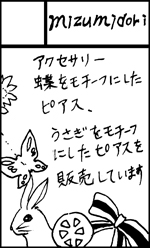 mizumidori
アクセサリー
蝶をモチーフにした
ピアス、
うさぎをモチーフ
にしたピアスを
販売しています